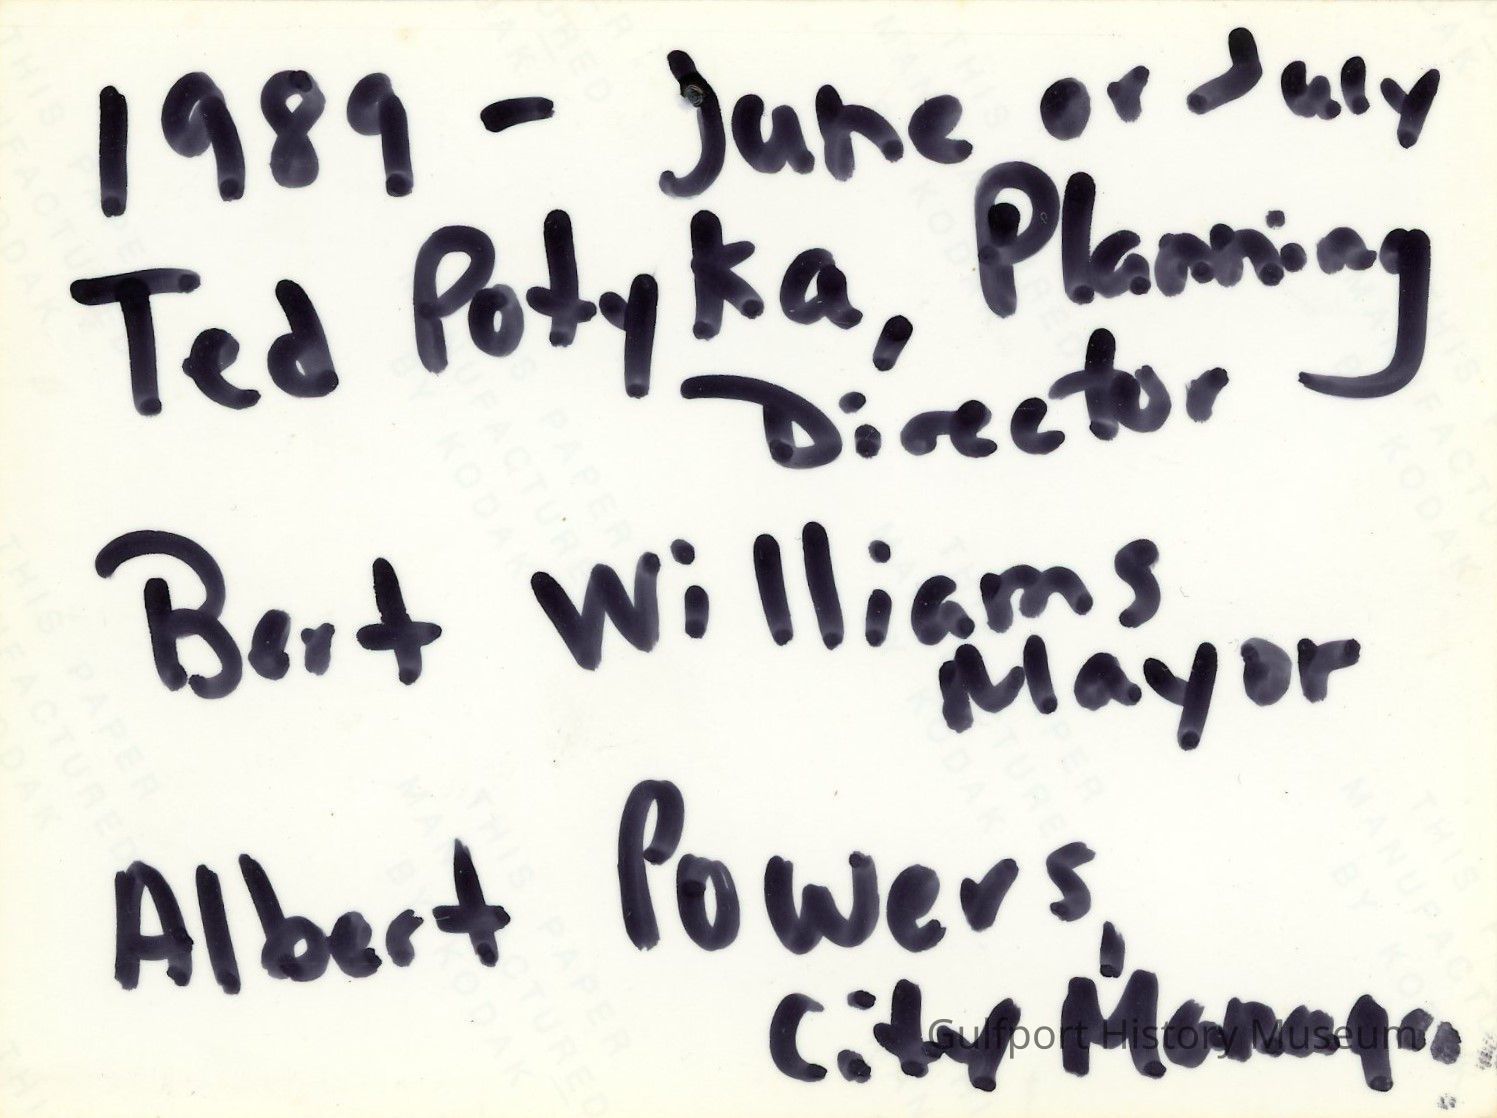 1989 - June or July
Ted Potyka, Planning
Director
Bert Williams
Mayor
Albert Powers,
City Manager
Gulfport History Museum
THIS PAPER
MANUFACTURED
BY KODAK